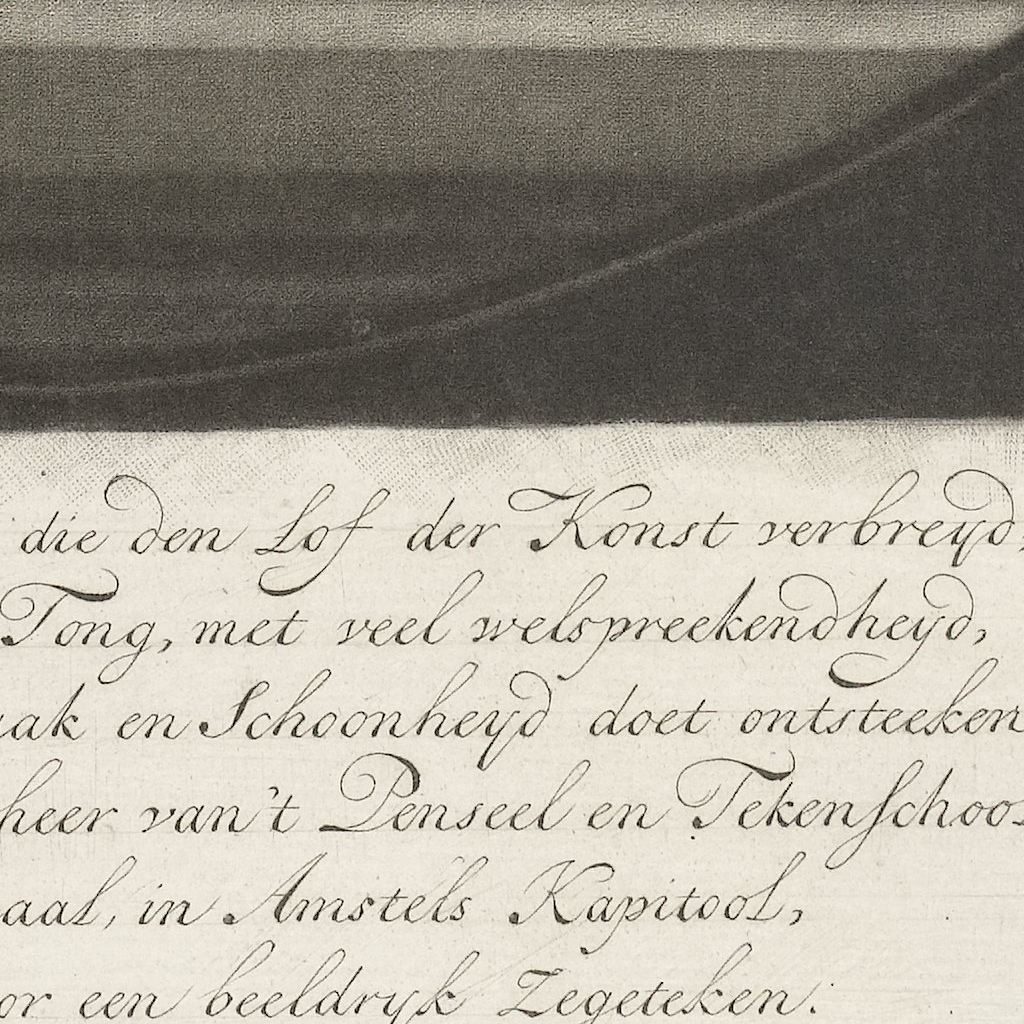 die den Lof der Konst verbreyd,
Tong, met veel welspreekendheyd,
en Schoonheyd doet ontsteeken
van't Penseel en TekenSchool
in Amstels Kapitool,
een beeldryk Zegeteken.